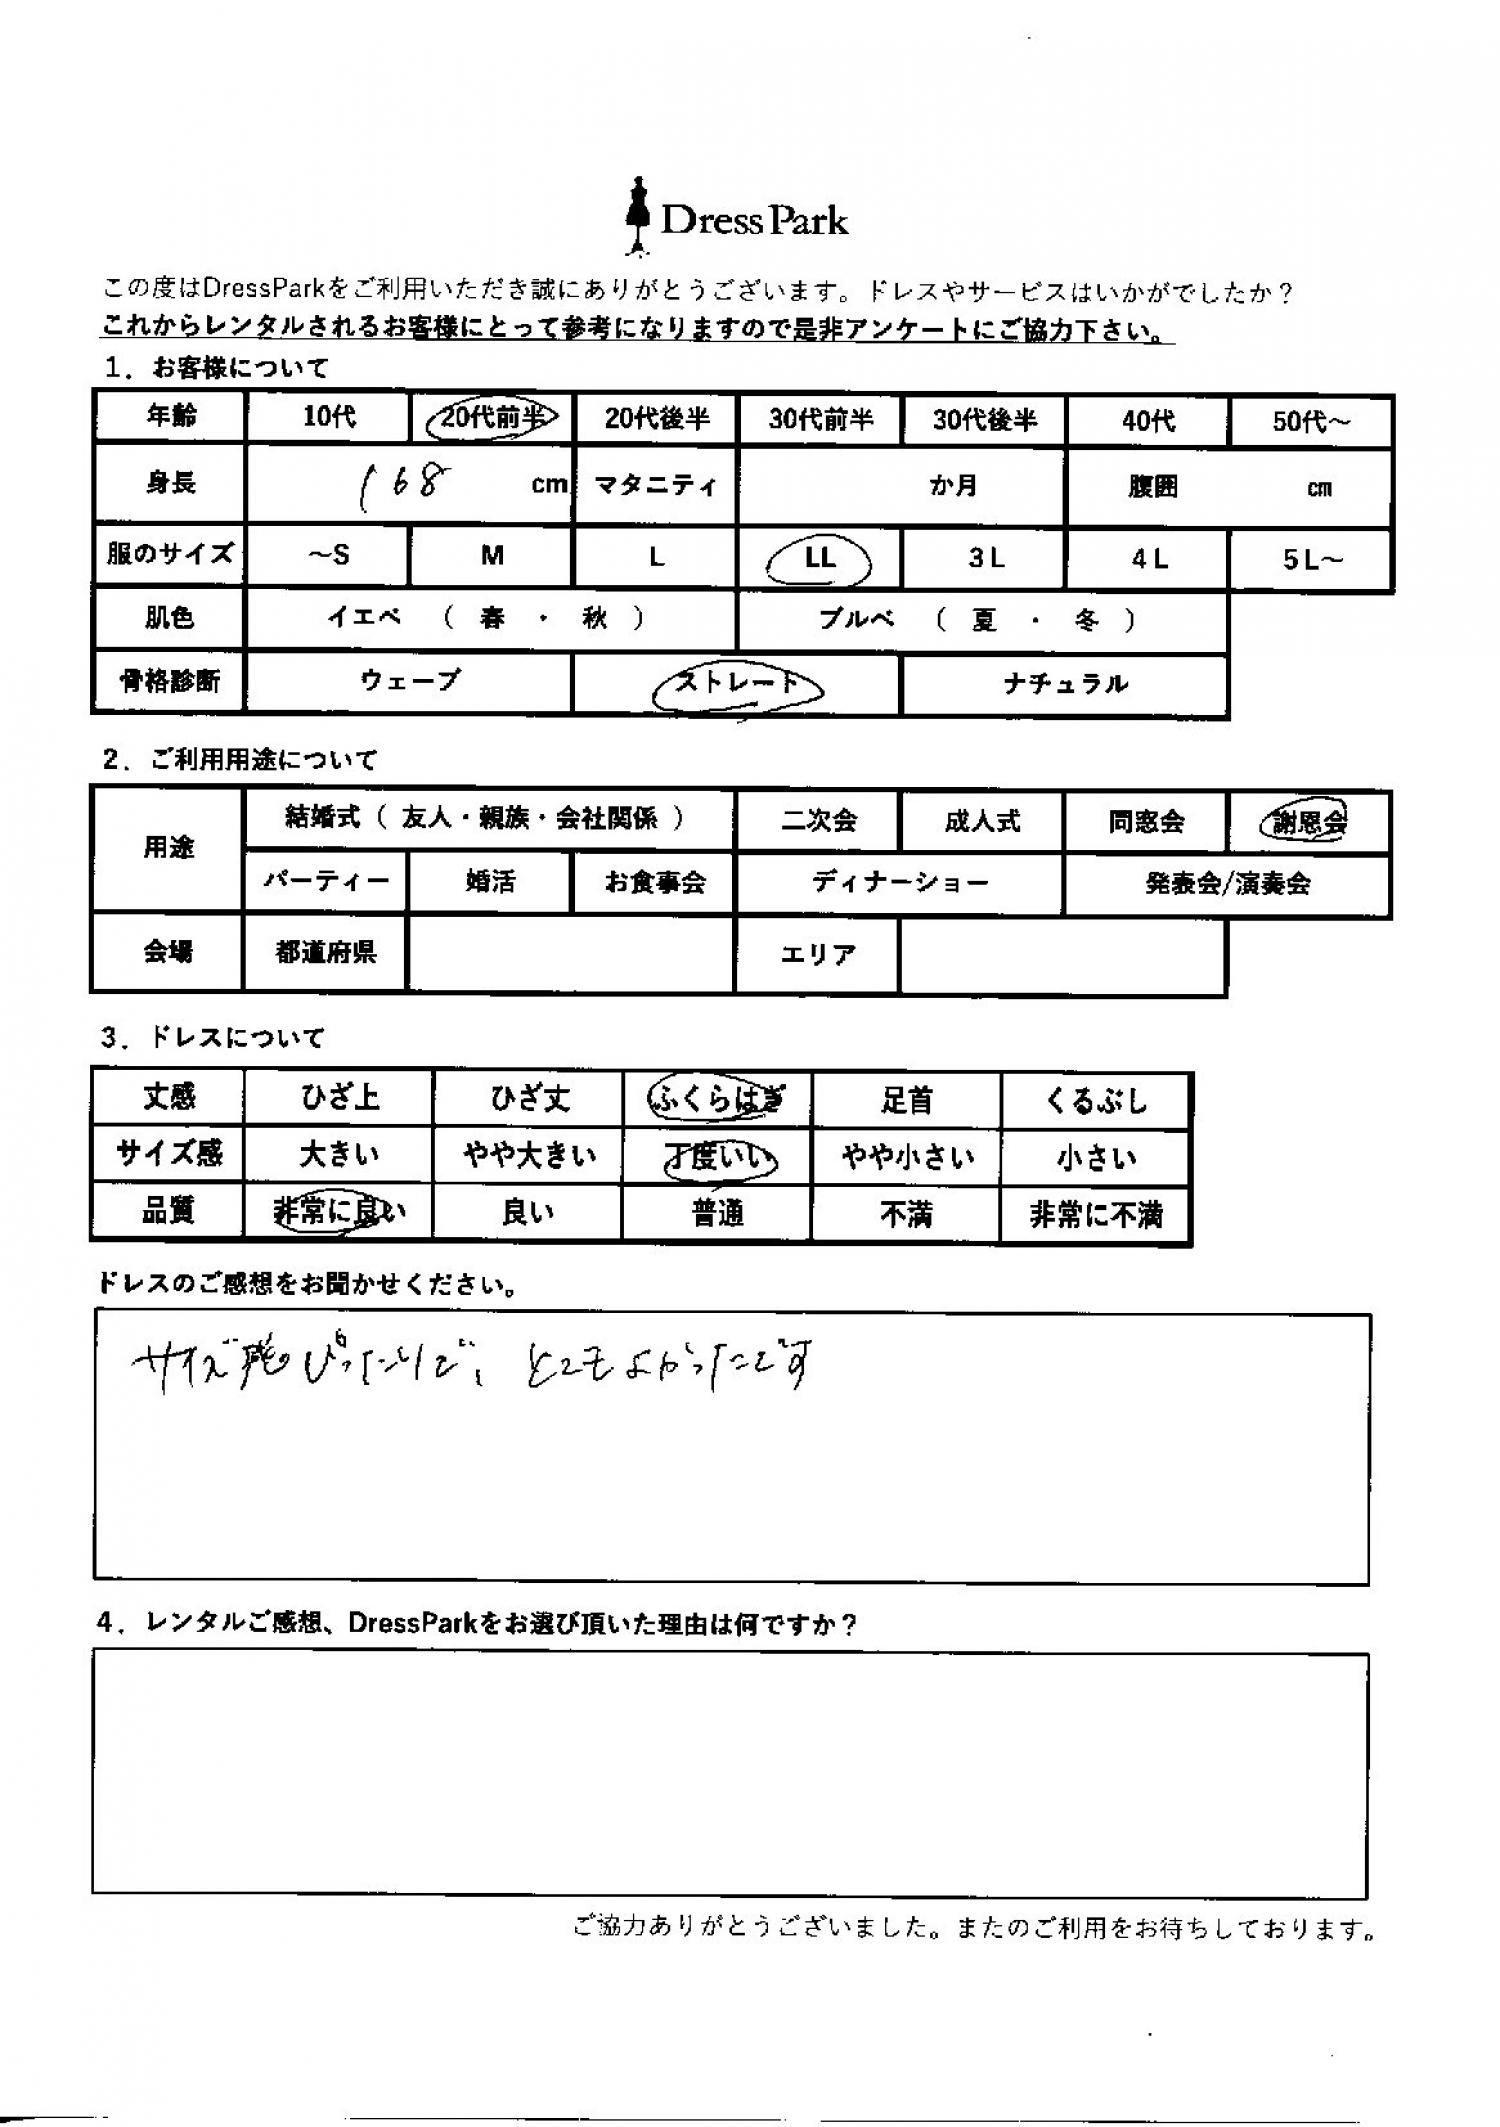 Dress Park
この度はDressParkをご利用いただき誠にありがとうございます。ドレスやサービスはいかがでしたか？
これからレンタルされるお客様にとって参考になりますので是非アンケートにご協力下さい。
1．お客様について
年齢 10代 20代前半 20代後半 30代前半 30代後半 40代 50代～
身長 168 cm マタニティ か月 腹囲 cm
服のサイズ ～S M L LL 3L 4L 5L～
肌色 イエベ（ 春 ・ 秋 ） ブルベ（ 夏 ・ 冬 ）
骨格診断 ウェーブ ストレート ナチュラル
2．ご利用用途について
用途 結婚式（ 友人・親族・会社関係 ） 二次会 成人式 同窓会 謝恩会
パーティー 婚活 お食事会 ディナーショー 発表会/演奏会
会場 都道府県 エリア
3．ドレスについて
丈感 ひざ上 ひざ丈 ふくらはぎ 足首 くるぶし
サイズ感 大きい やや大きい 丁度いい やや小さい 小さい
品質 非常に良い 良い 普通 不満 非常に不満
ドレスのご感想をお聞かせください。
サイズ感もぴったりで、とてもよかったです
4．レンタルご感想、DressParkをお選び頂いた理由は何ですか？
ご協力ありがとうございました。またのご利用をお待ちしております。